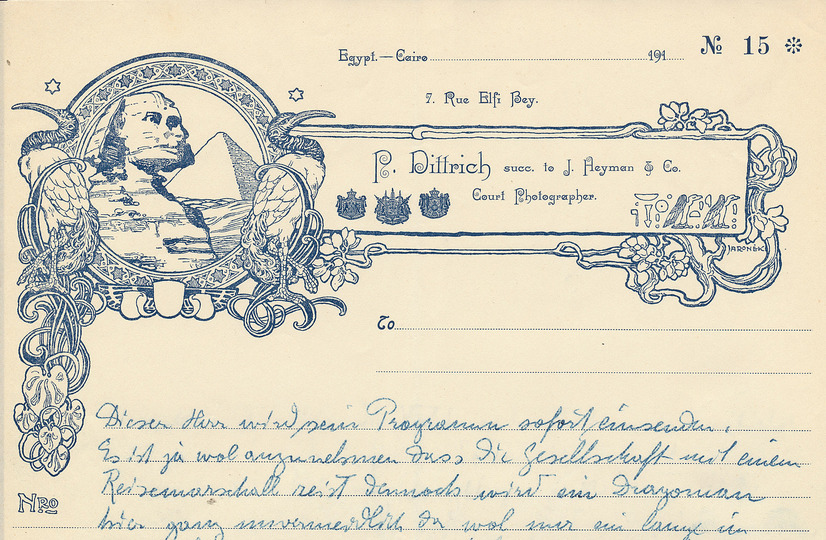 Egypt.—Cairo 191
№ 15
7. Rue Elfi Bey.
P. Dittrich succ. to J. Heyman & Co.
Court Photographer.
JARONĚK
To
Dieser Herr wird sein Programm sofort einsenden.
Es ist ja wol anzunehmen dass die Gesellschaft mit einem
Reisemarschall reist dennoch wird ein Dragoman
Nro
hier ganz unvermeidlich da wol nur ein lange im